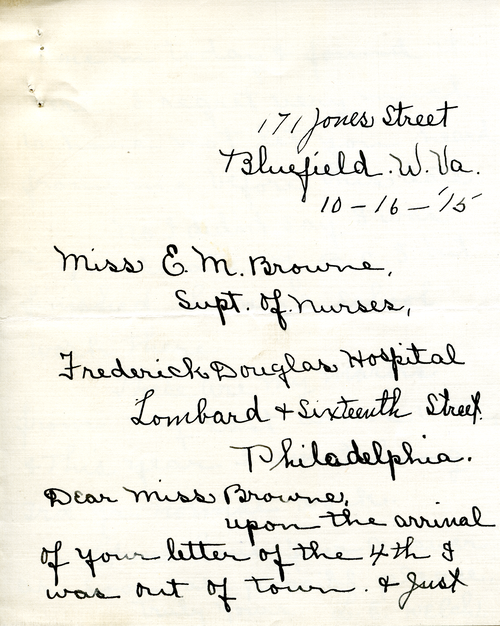 171 Jones Street
Bluefield. W. Va.
10 - 16 - '15
Miss E. M. Browne,
Supt. Of. Nurses,
Frederick Douglas Hospital
Lombard + Sixteenth Street.
Philadelphia.
Dear Miss Browne,
upon the arrival
of your letter of the 4th I
was out of town. & Just